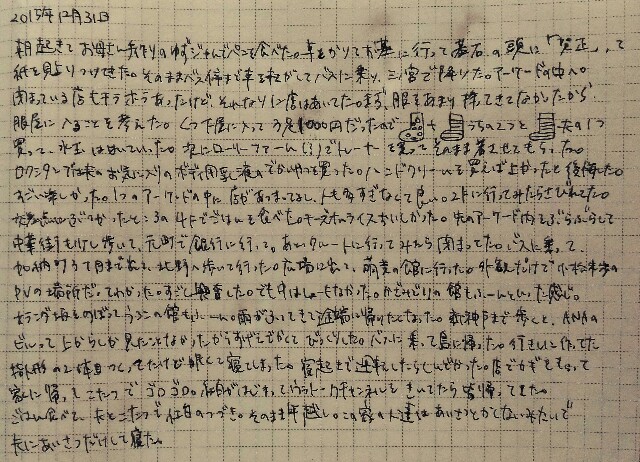 2015年12月31日
朝起きてお母さん手作りのゆずジャムでパンを食べた。車をかりてお墓に行って墓石の頭に「賀正」って
紙を貼りつけた。そのままバス停まで車を転がしてバスに乗り、三ノ宮で降りた。アーケードの中へ。
閉まっている店もチラホラあったけど、それなりに店はあいてた。まず、服をあまり持ってきてなかったから
服屋に入ることを考えた。くつ下屋に入って3足1000円だったので うちの2つと 夫の1つ
買って、 はいていた。次にローリーズファーム(!)でトレーナーを買ってそのまま着させてもらった。
ロクシタンでは夫のお気に入りのボディ用乳液のでかいやつを買った。ハンドクリームを買えば よかったと後悔した。
すごい楽しかった。1つのアーケードの中に店があつまってるし、人も多すぎなくて良い。2Fに行ってみたらさびれてた。
ぶつかったところの4Fでごはんを食べた。 ライスおいしかった。先のアーケード内をぶらぶらして
中華街もけし歩いて、元町で銀行に行って。あと ルートに行ってみたら閉まってた。バスに乗って、
 まで出て、北野へ歩いて行った。広場に出て、萌黄の館に行った。外観だけで 小松未歩の
PVの場所だってわかった。すごし興奮した。でも中はしょーもなかった。かざみどりの館もふーんといった感じ。
 坂をのぼって うろこの館もふーん。雨がふってきて途端に帰りたくなった。新神戸まで歩くと、ANAの
ビルって上からしか見たことなかったから すげえでかくてびっくりした。バスに乗って島に帰った。行きしに作ってた
指人形の2体目つくってたけど眠くて寝てしまった。 運転したらしんどかった。店でかぎをもらって
家に帰ってこたつでゴロゴロ。紅白がはじまってウラトークチャンネルをきいてたら皆帰ってきた。
ごはん食べて、夫とこたつで紅白のつづき。そのまま年越し。この家の人達はあいさつとかしないみたいで
夫にあいさつだけして寝た。